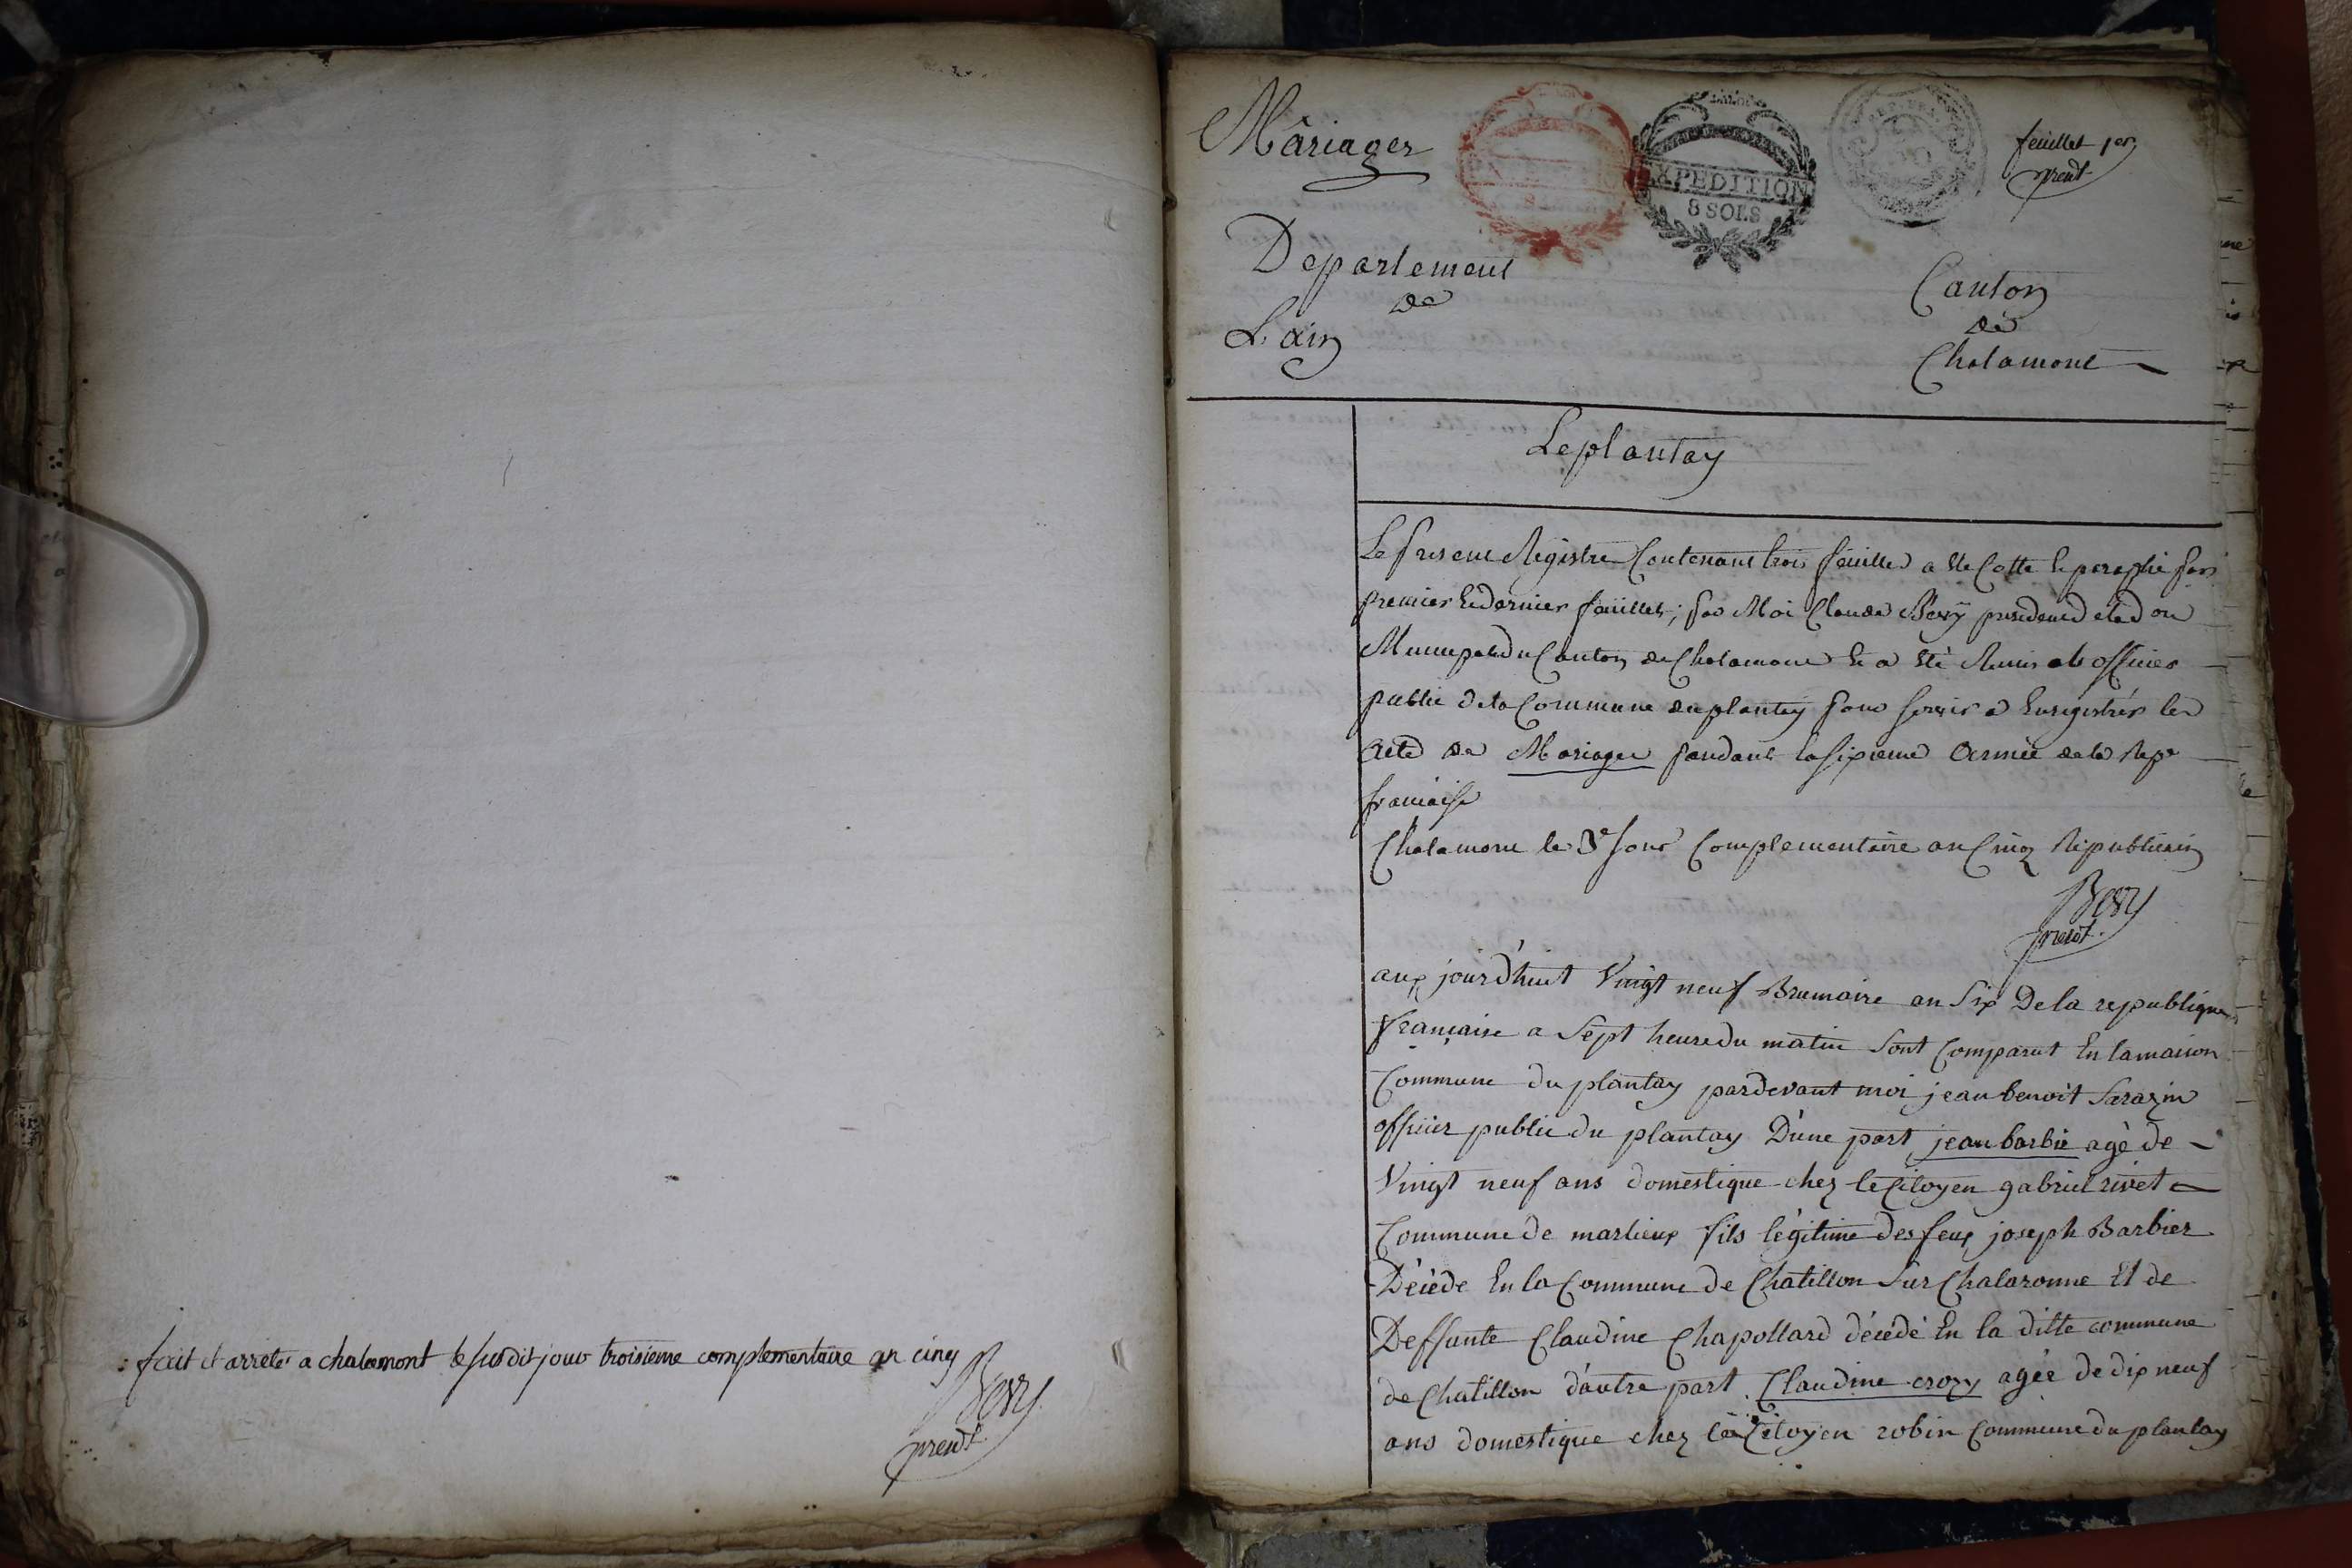 fait et arrete a chalamont le susdit jour troisieme complementaire an cinq
Bery
presdt
Mâriages
EXPEDITION
8 SOLS
feuillet 1er
presdt
Departement
de
L'ain
Canton
de
Chalamont
Leplantay
Le present Registre Contenant trois feuilles a ete Cotte et paraphé par
premier et dernier feüillet; par Moi Claude Bery president de l'ad on
Municipale du Canton de Chalamont et a eté Remis a l'officier
public de la Commune du plantay pour servir a Enregistrér les
Acte de Mariages pendant la sixieme Année de la Repe
francaise
Chalamont le 3e jour Complementaire an Cinq Republicain
Bery
presdt.
aux jourd'huit Vingt neuf Brumaire an Six De la republique
francaise a Sept heure du matin Sont Comparut En la maison
Commune du plantay pardevant moi jean benoit Sarazin
officier public du plantay D'une part jean barbié agé de
Vingt neuf ans domestique chez le Citoyen gabriel rivet
Commune de marlieux fils légitime des feux joseph Barbier
Décéde En la Commune de Chatillon Sur Chalaronne Et de
Deffunte Claudine Chapollard décédé En la ditte commune
de Chatillon d'autre part Claudine crozy agée de dix neuf
ans domestique chez le Citoyen robin Commune du plantay